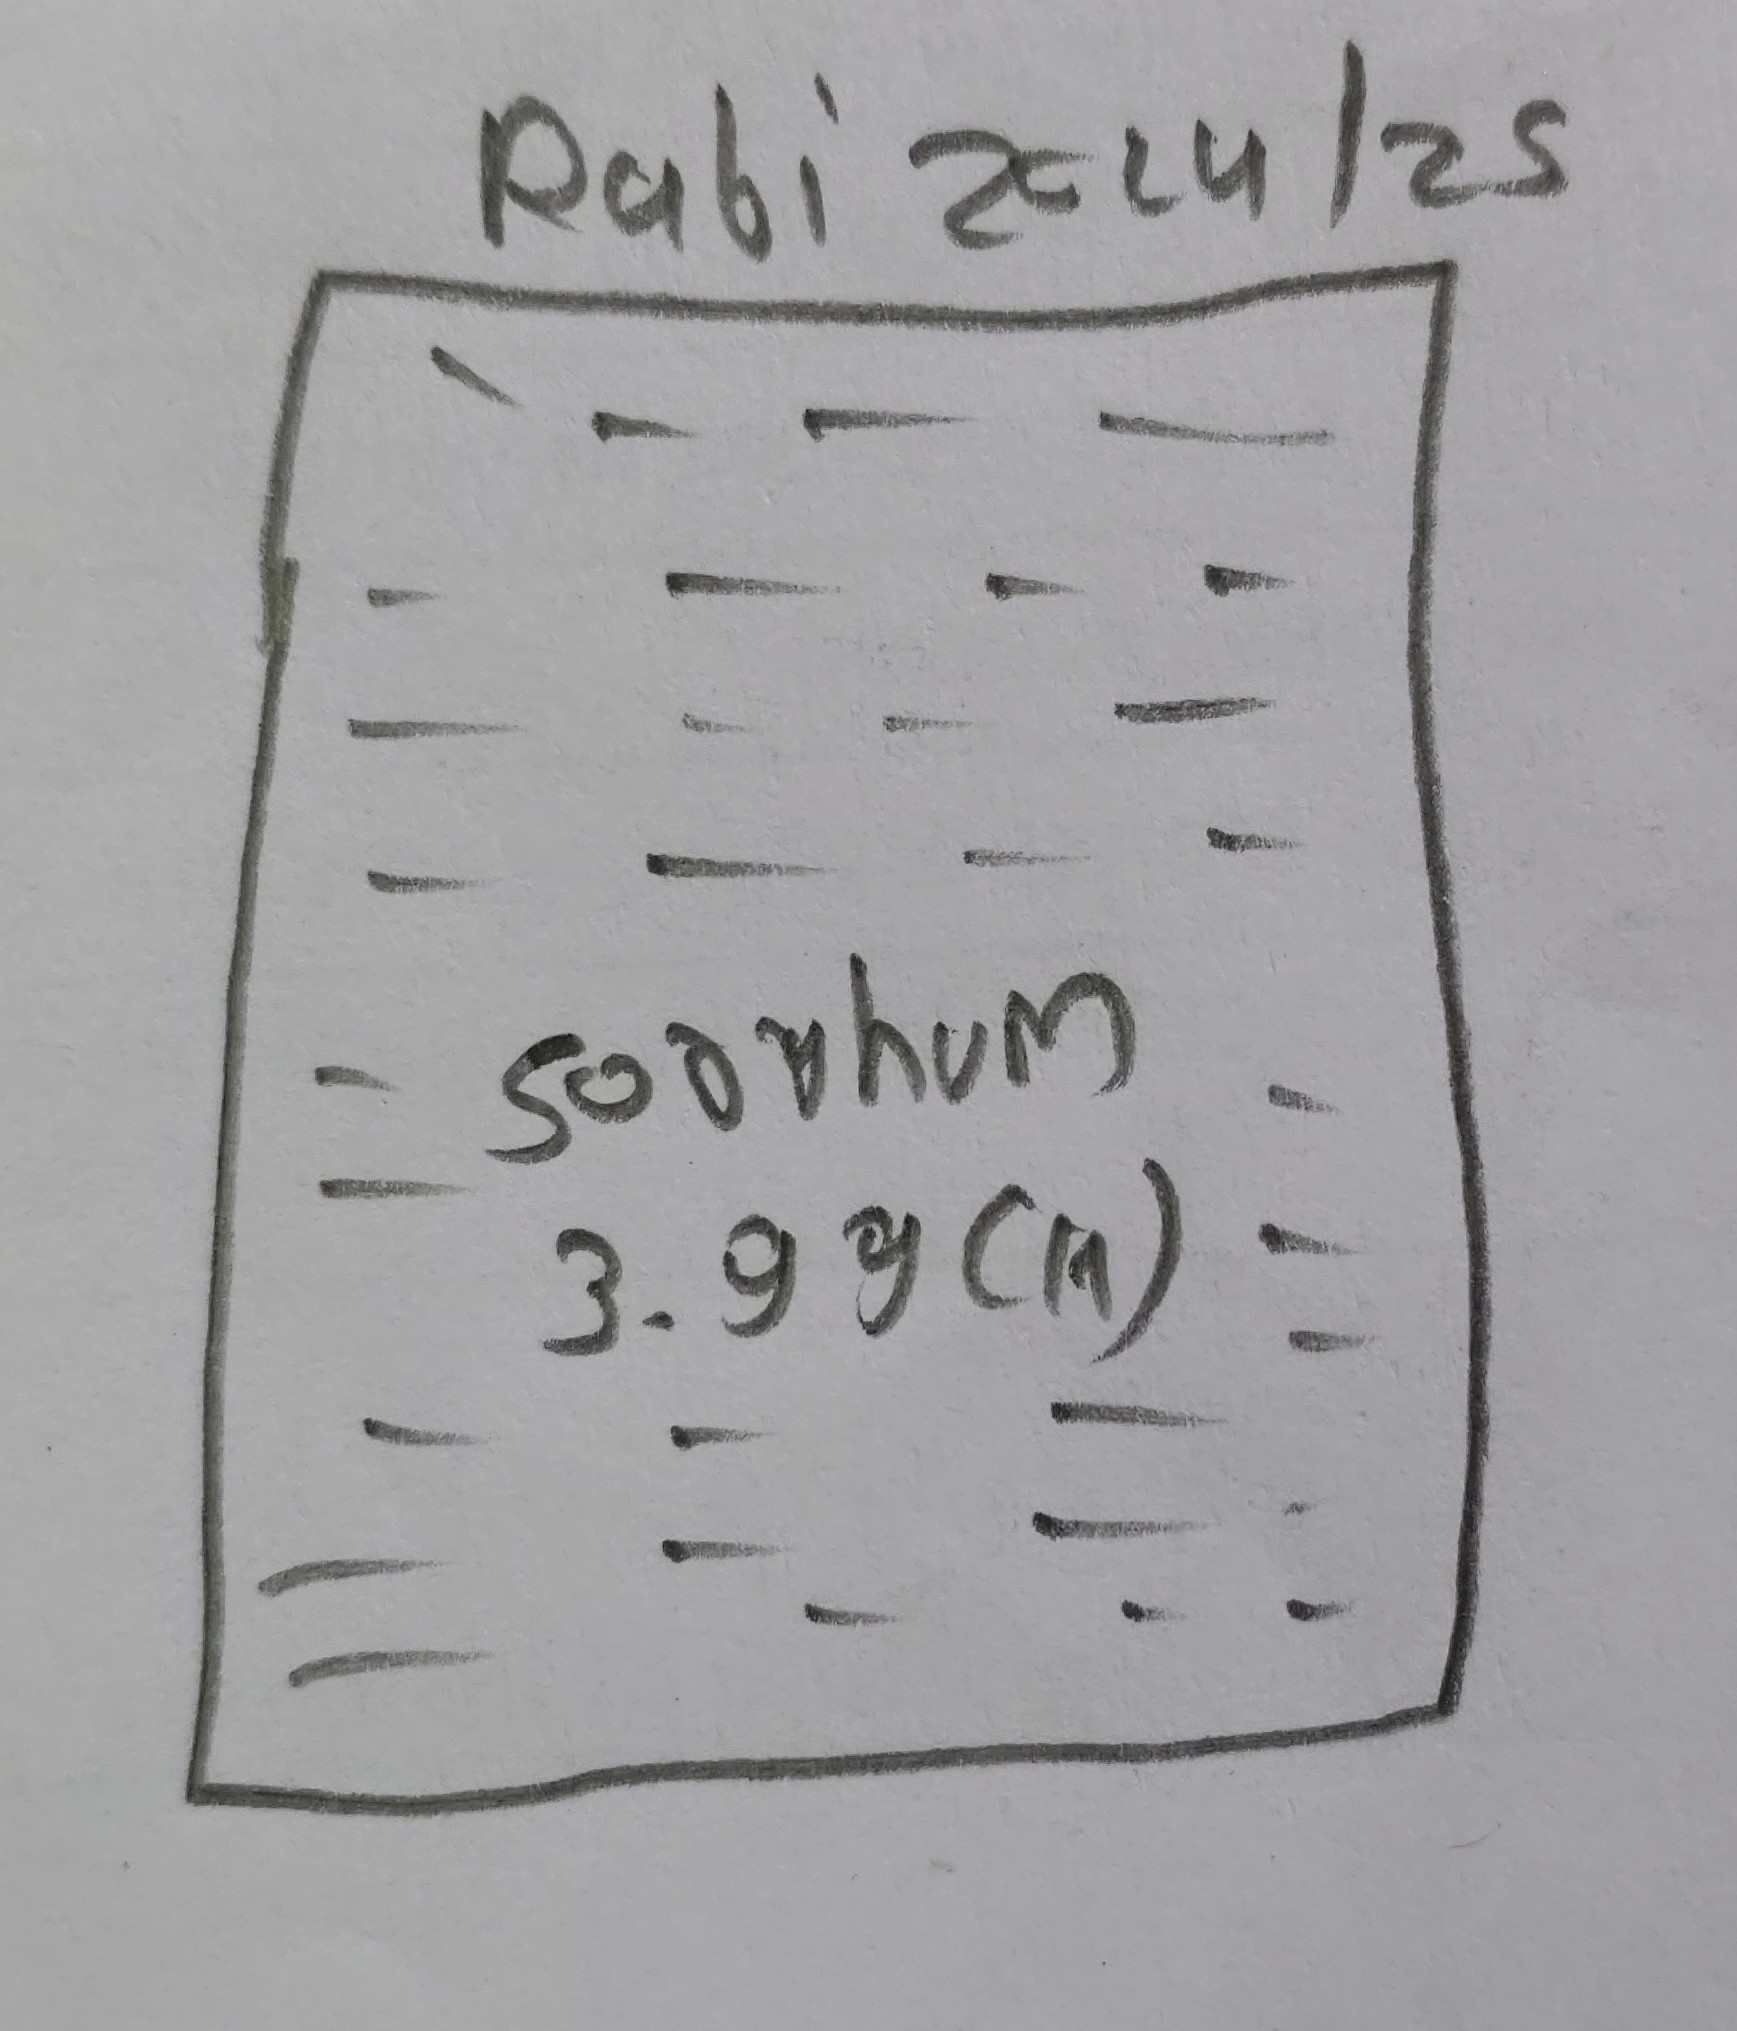 Rabi 2024/25
Sorghum
3.9 y (A)